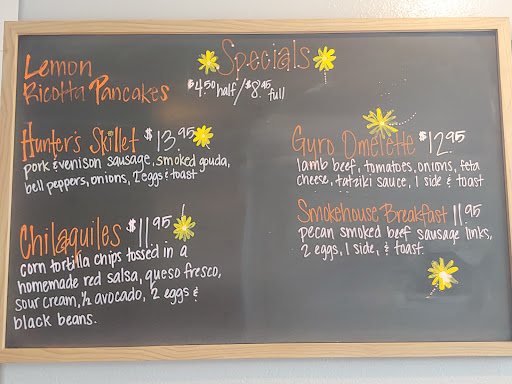 Specials
Lemon
Ricotta Pancakes $4.50 half / $8.95 full
Hunter's Skillet $13.95
pork & venison sausage, smoked gouda,
bell peppers, onions, 2 eggs & toast
Chilaquiles $11.95
corn tortilla chips tossed in a
homemade red salsa, queso fresco,
sour cream, ½ avocado, 2 eggs &
black beans.
Gyro Omelette $12.95
lamb beef, tomatoes, onions, feta
cheese, tatziki sauce, 1 side & toast
Smokehouse Breakfast 11.95
pecan smoked beef sausage links,
2 eggs, 1 side, & toast.